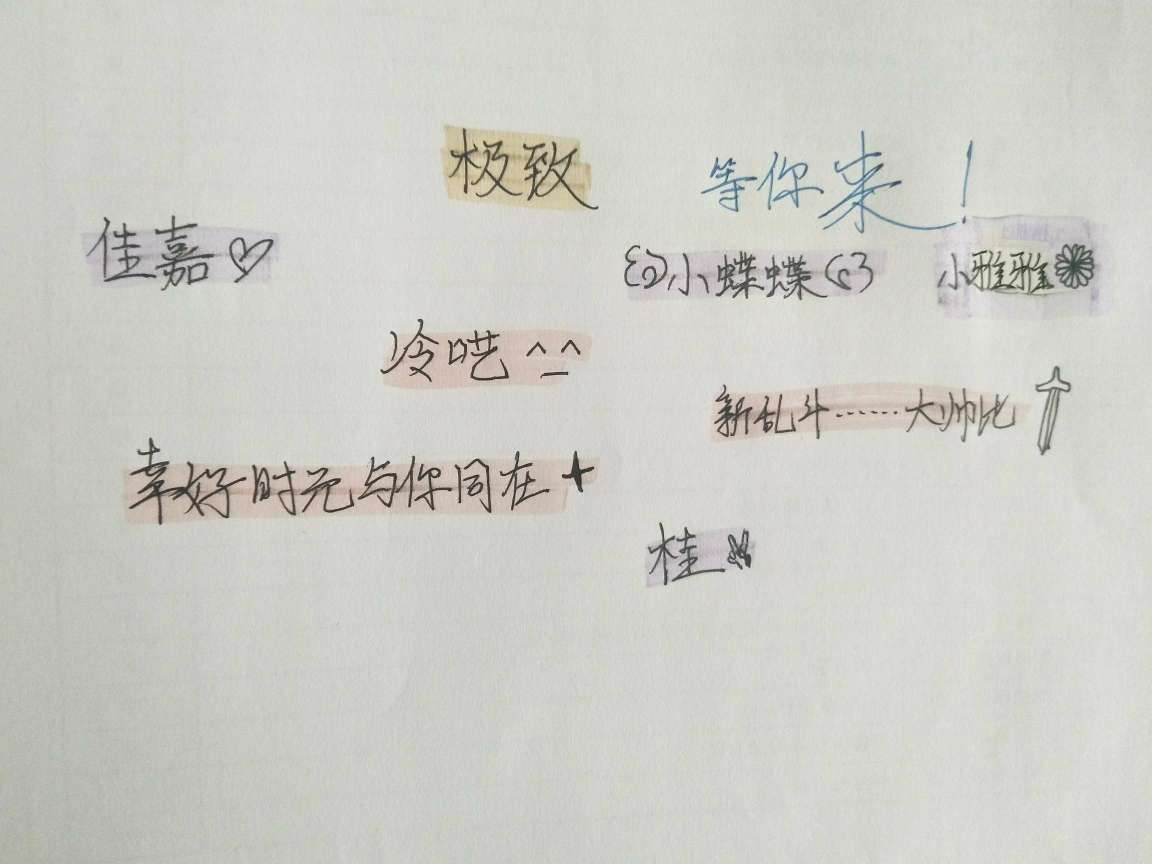 极致
等你来！
佳嘉♡
小蝶蝶
小雅雅
冷呓^_^
新乱斗……大帅比
幸好时元与你同在
桂